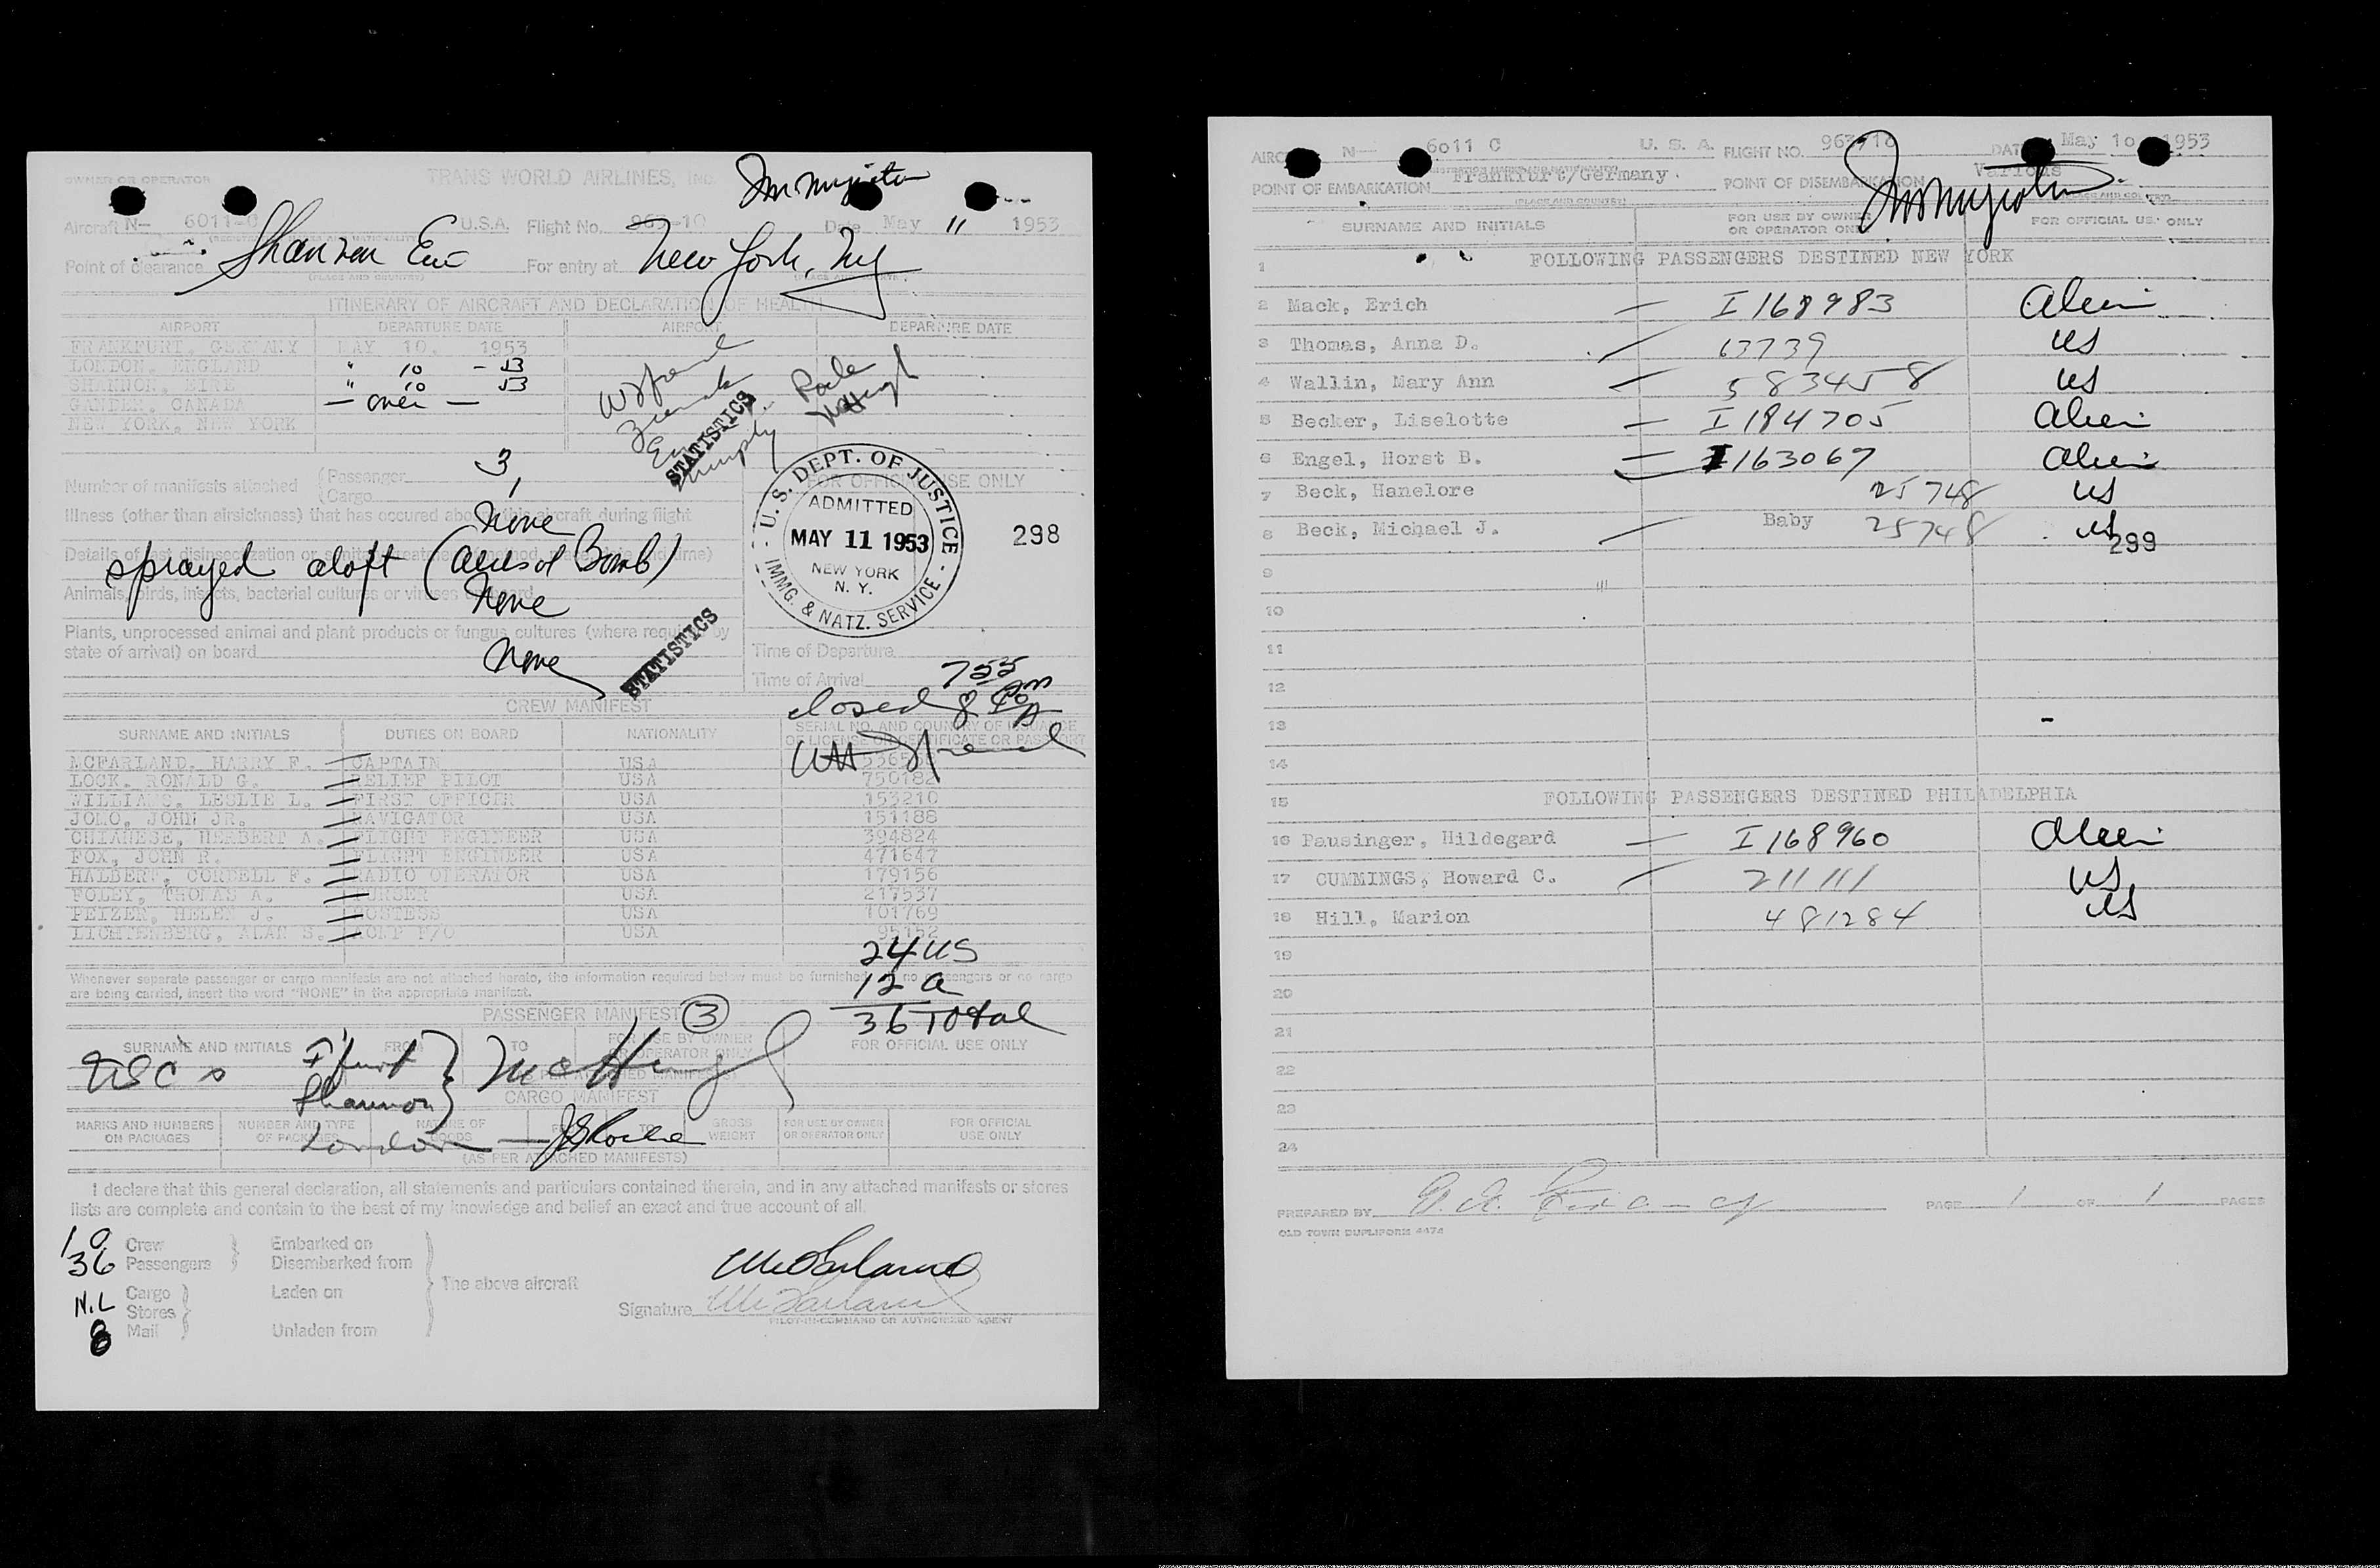 OWNER OR OPERATOR TRANS WORLD AIRLINES, INC. Immigration
Aircraft N- 6011-C U.S.A. Flight No. 963-10 Date May 11 1953
Point of clearance Shannon Eire For entry at New York, NY
(PLACE AND COUNTRY)
ITINERARY OF AIRCRAFT AND DECLARATION OF HEALTH
AIRPORT DEPARTURE DATE AIRPORT DEPARTURE DATE
FRANKFURT, GERMANY MAY 10, 1953
LONDON, ENGLAND " 10 - 53
SHANNON, EIRE " 10 53
GANDER, CANADA - over -
NEW YORK, NEW YORK
Roche
McHugh
STATISTICS
Number of manifests attached (Passenger 3
(Cargo 1
FOR OFFICIAL USE ONLY
Illness (other than airsickness) that has occured aboard this aircraft during flight
None
Details of last disinsectization or sanitary treatment (method, place, date and time)
sprayed aloft (Aerosol Bomb)
Animals, birds, insects, bacterial cultures or viruses on board
None
Plants, unprocessed animal and plant products or fungus cultures (where required by
state of arrival) on board
None
STATISTICS
U.S. DEPT. OF JUSTICE
ADMITTED
MAY 11 1953
NEW YORK
N. Y.
IMMG. & NATZ. SERVICE
298
Time of Departure
Time of Arrival 755 am
closed 8
CREW MANIFEST
SURNAME AND INITIALS DUTIES ON BOARD NATIONALITY SERIAL NO. AND COUNTRY OF ISSUANCE
OF LICENSE OR CERTIFICATE OR PASSPORT
MCFARLAND, HARRY F. CAPTAIN USA
LOCK, RONALD G. RELIEF PILOT USA 750182
WILLIAMS, LESLIE L. FIRST OFFICER USA 153210
JOMO, JOHN JR. NAVIGATOR USA 151188
CHIANESE, HERBERT A. FLIGHT ENGINEER USA 394824
FOX, JOHN R. FLIGHT ENGINEER USA 471647
HALBERT, CORDELL F. RADIO OPERATOR USA 179156
FOLEY, THOMAS A. PURSER USA 217537
PEIZER, HELEN J. HOSTESS USA 101769
LICHTENBERG, ALAN S. USA 95152
24 US
12 A
36 Total
Whenever separate passenger or cargo manifests are not attached hereto, the information required below must be furnished. If no passengers or no cargo
are being carried, insert the word "NONE" in the appropriate manifest.
PASSENGER MANIFEST 3
SURNAME AND INITIALS FROM TO FOR USE BY OWNER
OR OPERATOR ONLY FOR OFFICIAL USE ONLY
USC s F'furt } McHugh
Shannon
(AS PER ATTACHED MANIFESTS)
CARGO MANIFEST
MARKS AND NUMBERS
ON PACKAGES NUMBER AND TYPE
OF PACKAGES NATURE OF
GOODS FROM TO GROSS
WEIGHT FOR USE BY OWNER
OR OPERATOR ONLY FOR OFFICIAL
USE ONLY
London - JS Roche
(AS PER ATTACHED MANIFESTS)
I declare that this general declaration, all statements and particulars contained therein, and in any attached manifests or stores
lists are complete and contain to the best of my knowledge and belief an exact and true account of all.
10 Crew Embarked on
36 Passengers Disembarked from
The above aircraft
NIL Cargo Laden on
Stores
8 Mail Unladen from
McFarland
Signature McFarland
PILOT-IN-COMMAND OR AUTHORIZED AGENT
AIRCRAFT N- 6011 C U. S. A. FLIGHT NO. 963/10 DATE May 10 1953
POINT OF EMBARKATION Frankfurt/Germany. POINT OF DISEMBARKATION Various
(PLACE AND COUNTRY)
Immigration
SURNAME AND INITIALS FOR USE BY OWNER
OR OPERATOR ONLY FOR OFFICIAL USE ONLY
1 FOLLOWING PASSENGERS DESTINED NEW YORK
2 Mack, Erich I 168983 Alien
3 Thomas, Anna D. 63739 US
4 Wallin, Mary Ann 583458 US
5 Becker, Liselotte I 184705 Alien
6 Engel, Horst B. I 163067 Alien
7 Beck, Hanelore 25748 US
8 Beck, Michael J. Baby 25748 US
299
9
10
11
12
13
14
15 FOLLOWING PASSENGERS DESTINED PHILADELPHIA
16 Pausinger, Hildegard I 168960 Alien
17 CUMMINGS, Howard C. 211111 US
18 Hill, Marion 481284 US
19
20
21
22
23
24
PREPARED BY PAGE 1 OF 1 PAGES
OLD TOWN DUPLIFORM 4474